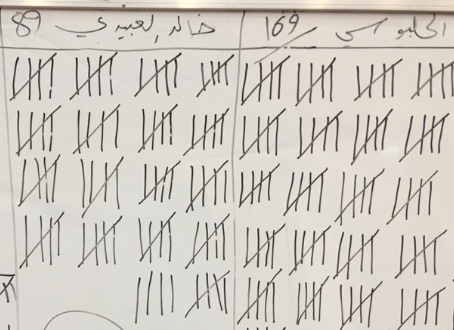 الحلبوسي 169 خالد العبيدي 89